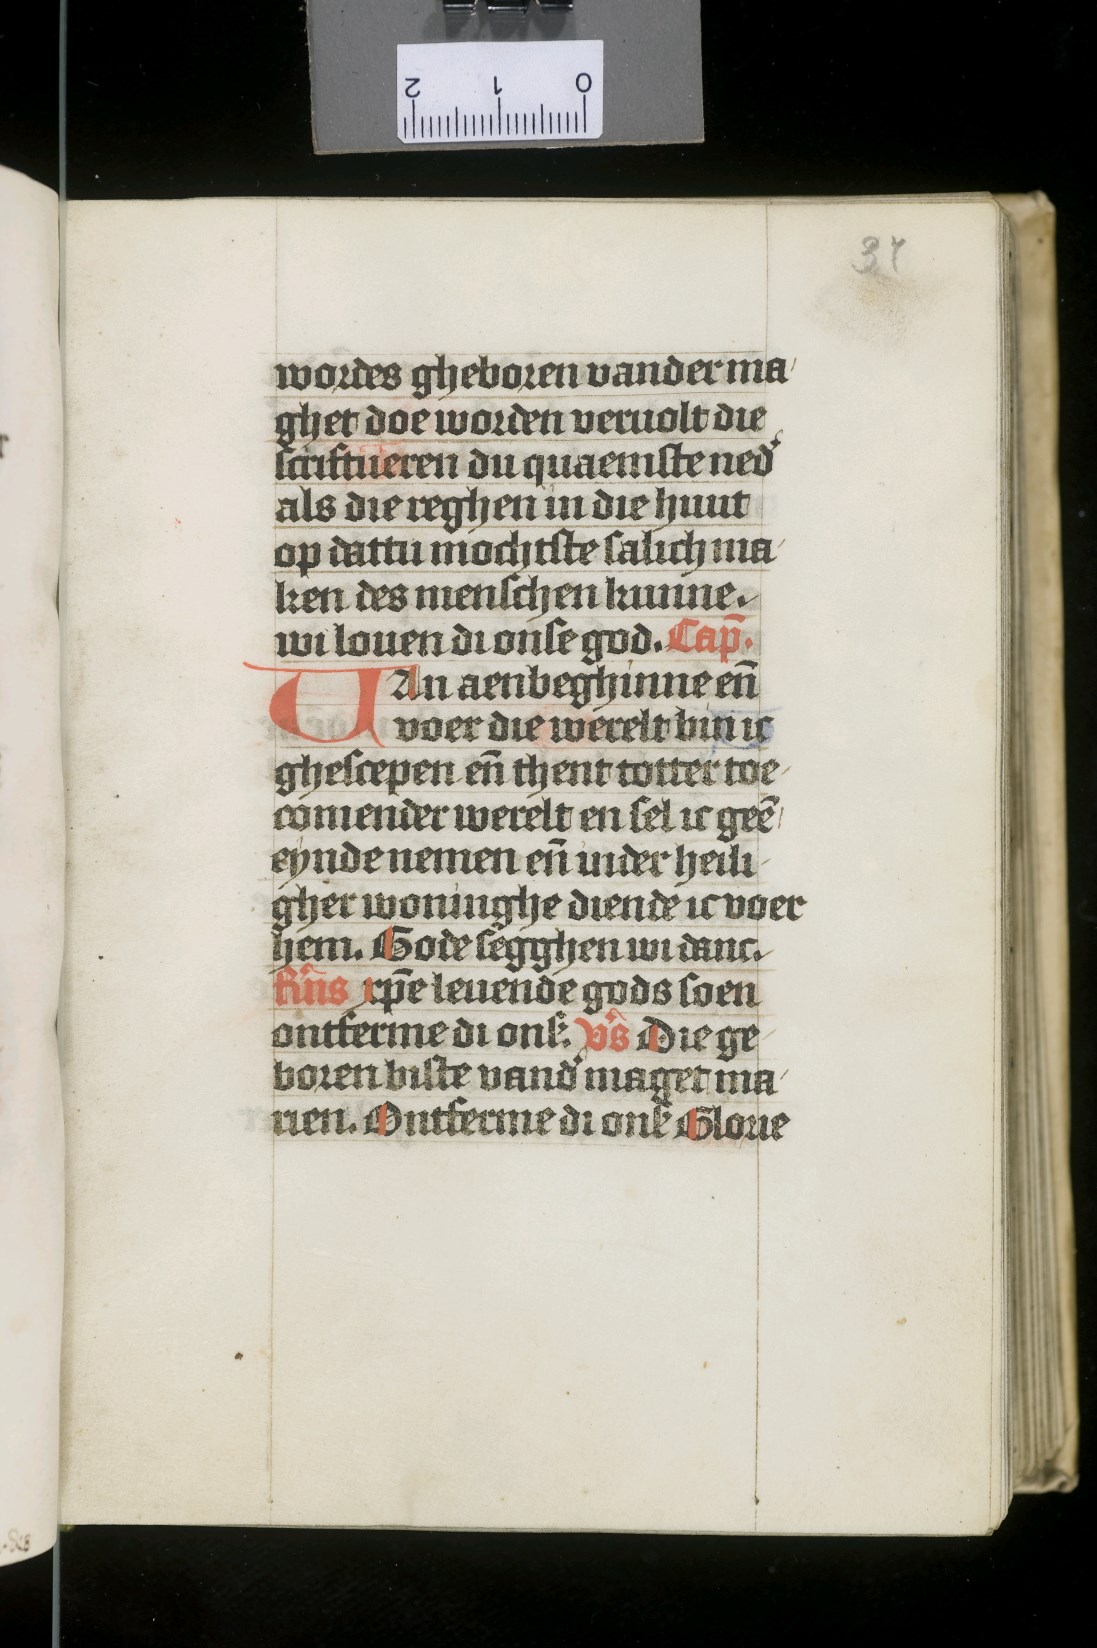 37
wordes gheboren vander ma
ghet doe worden veruolt die
scriftueren du quaemste ned'
als die reghen in die huut
op dattu mochtste salich ma
ken des menschen kunne.
wi louen di onse god. Cap̄.
VAn aenbeghinne en̄
voer die werelt bin ic
ghescepen en̄ thent totter toe
comender werelt en sel ic geē
eynde nemen en̄ inder heili
gher woninghe diende ic voer
hem. Gode segghen wi danc.
xp̄e leuende gods soen
ontferme di ons. v̂s Die ge
boren biste vand' maget ma
rien. Ontferme di ons Glorie